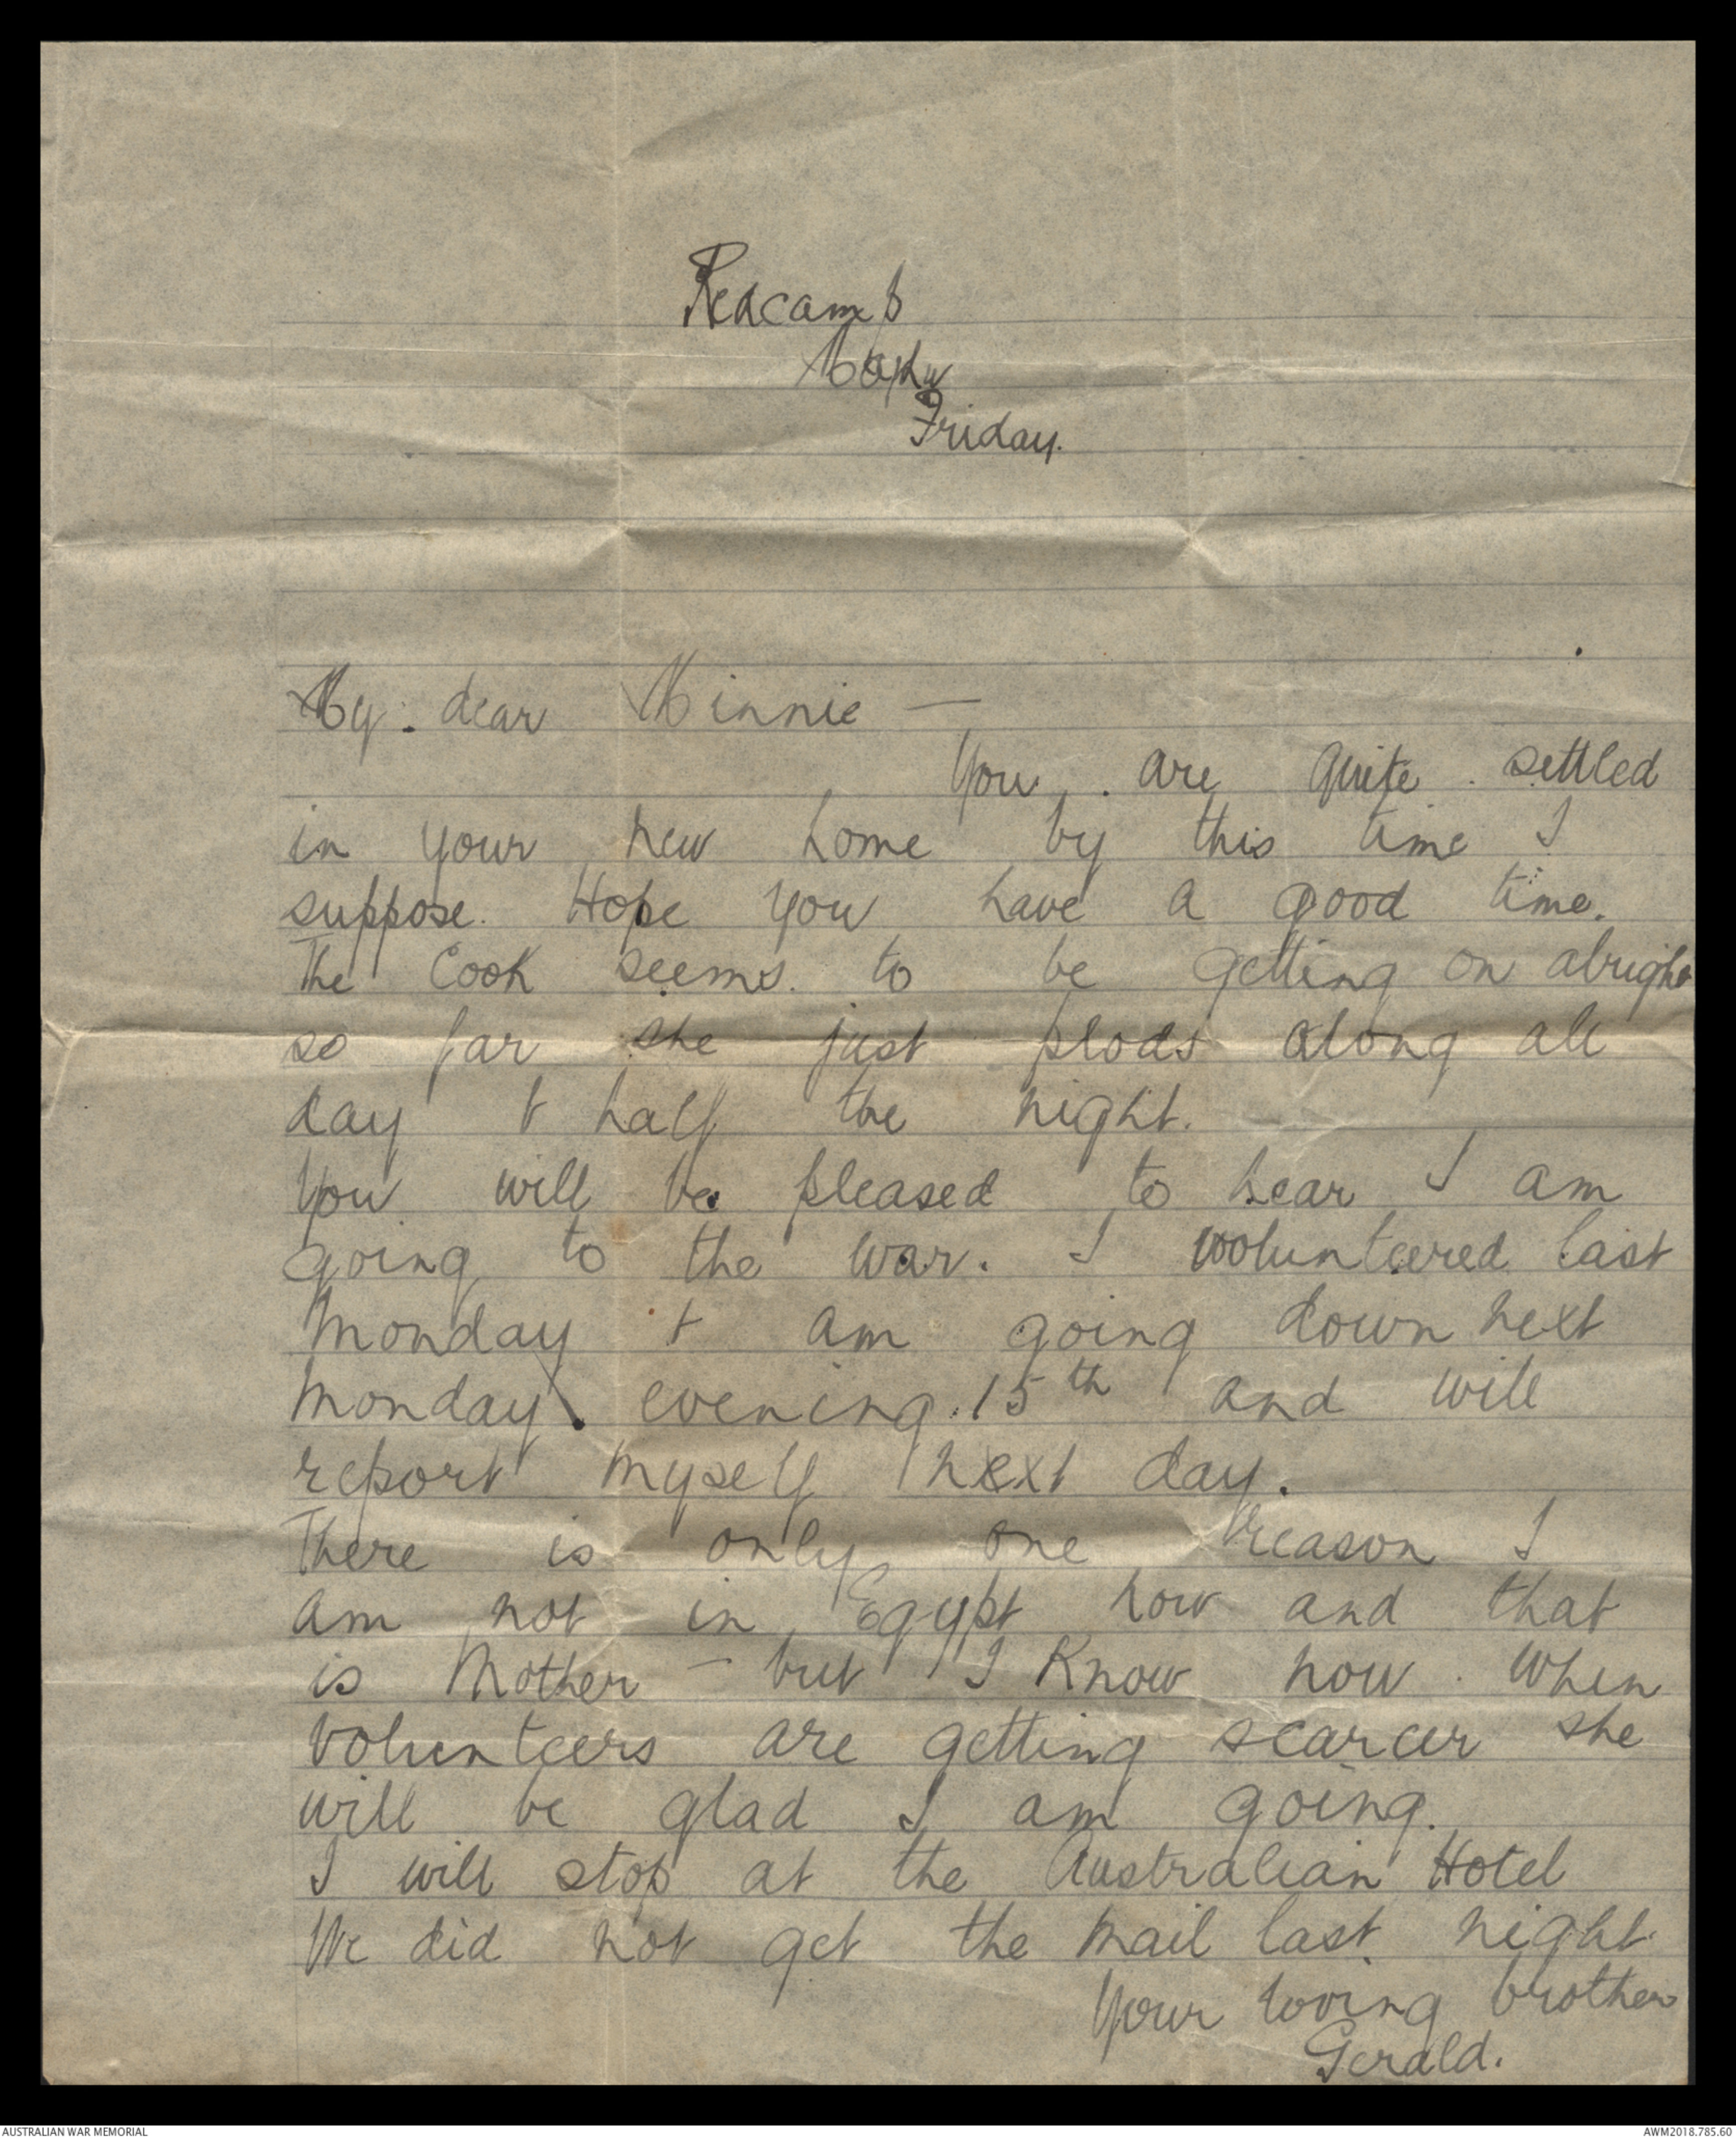 Redcamp
Moyhu
Friday.
My dear Minnie —
You are quite settled
in your new home by this time I
suppose. Hope you have a good time.
The Cook seems to be getting on alright
so far she just plods along all
day & half the night.
You will be pleased to hear I am
going to the war. I volunteered last
Monday & am going down next
Monday evening 15th and will
report myself next day.
There is only one reason I
am not in Egypt now and that
is Mother – but I know now when
volunteers are getting scarcer she
will be glad I am going.
I will stop at the Australian Hotel
We did not get the mail last night.
Your loving brother
Gerald.
AUSTRALIAN WAR MEMORIAL
AWM2018.785.60